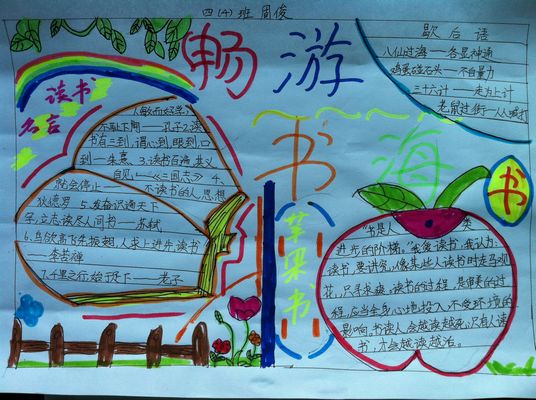 四(4)班 周俊
畅游
书海
读书
名言
1敏而好学,
不耻下问——孔子2.读
书有三到,谓心到,眼到,口
到——朱熹 3.读书百遍,其义
自见!——《三国志》 4.
就会停止—— 不读书的人,思想
狄德罗 5.发奋识遍天下
字,立志读尽人间书——苏轼
6.鸟欲高飞先振翅,人求上进先读书
——李苦禅
7.千里之行始于足下——老子
歇后语
八仙过海——各显神通
鸡蛋碰石头——不自量力
三十六计——走为上计
老鼠过街——人人喊打
书
苹果书
"书是人 类
进步的阶梯。"我爱读书,我认为:
读书要讲究,像某些人读书时走马观
花,只寻求
读书的过程
程,应当全身心地投入,不受环境的
影响,书读人会越读越死,只有人读
书,才会越读越活。